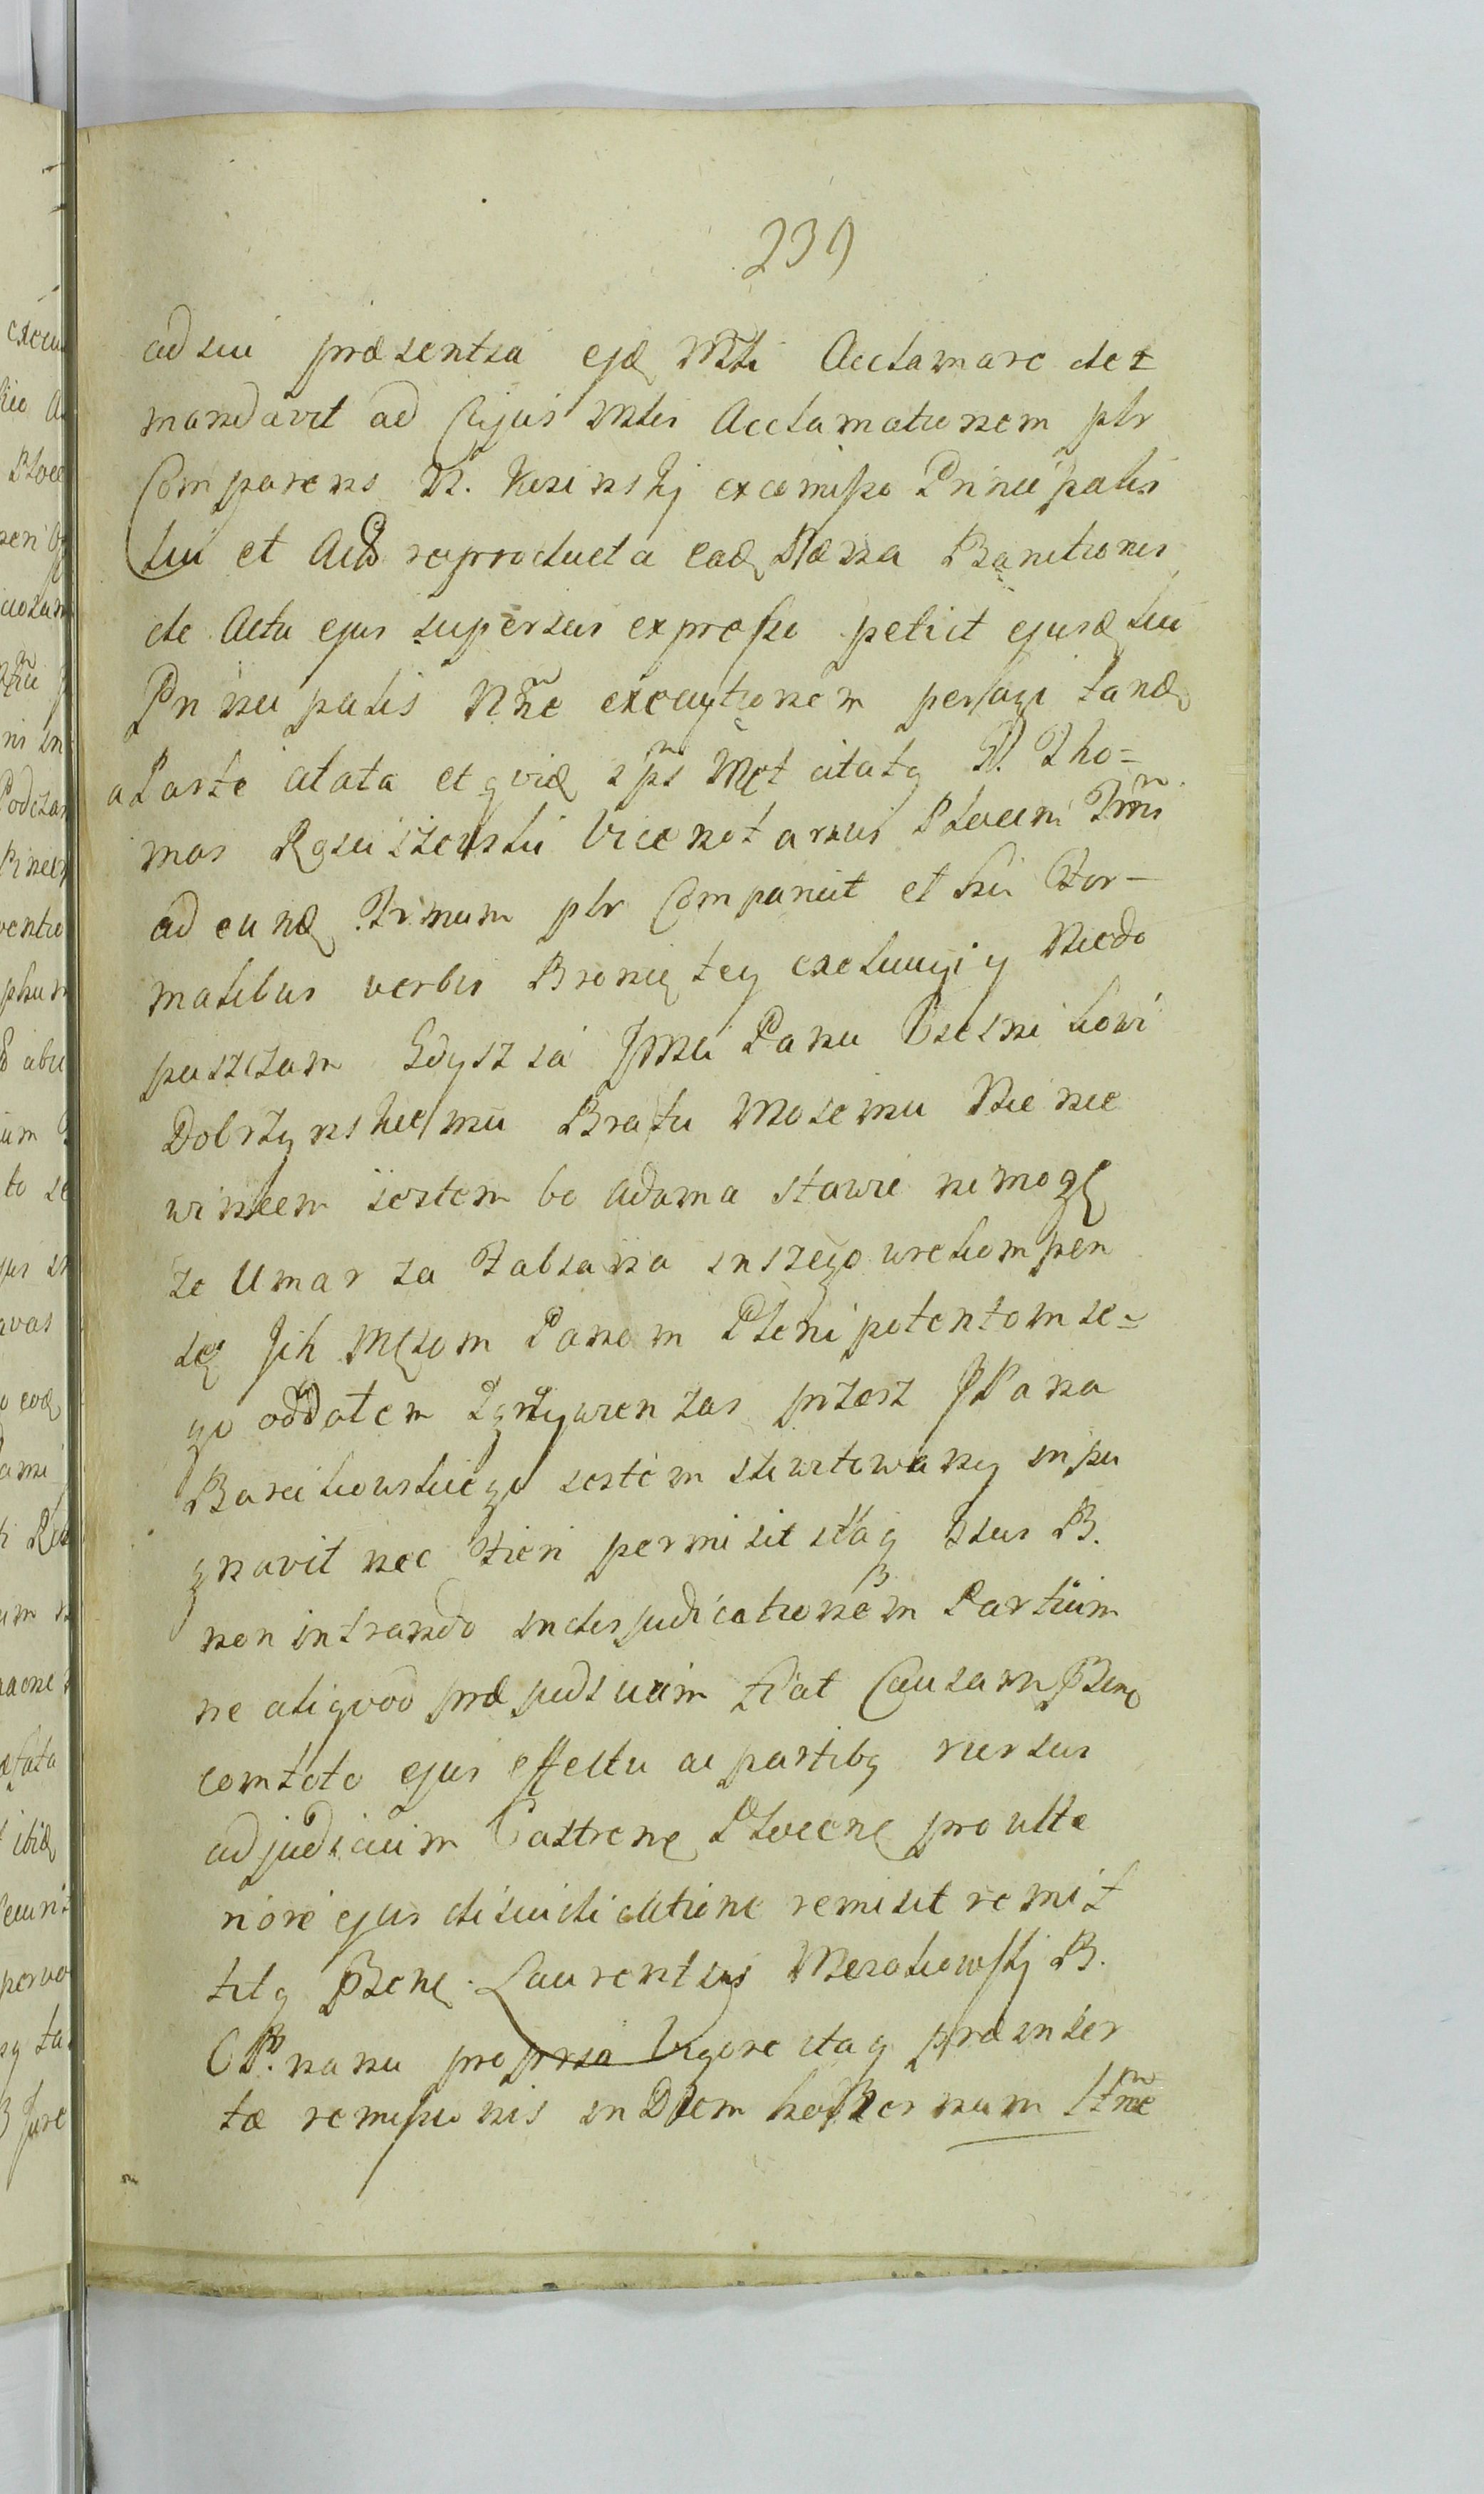 239
ad sui præsentia ejd Mti Acclamare de=
mandavit ad Cujus Mtis Acclamationem plr
Comparens N. Kosinskj ex comisso Principalis
sui et Actis reproducta ead Pæna Banitionis
de Actu ejus supersus expresso petiit ejusd sui
Principalis Nne executionem peragi tand
a Parte citata et qvid ips Met citatq N. Tho=
mas Rosciszewski Vicenotarius Plocen Trmi
ad eund Trmum plr Comparuit et his For=
malibus verbis Bronię tey exekucyi y Niedo
puszczam Gdysz ia Jmci Panu Czesnikowi
Dobrzynskiemu Bratu Mosemu Nie nie
winem iestem bo Adama stawic nimogę
ze Umar za Zabiana inszego wrekompen
sę Jch Mciom Panom Plenipotentom ie=
go oddałem przesz JPana
Barcikowskiego iestem skwitowany inpu
gnavit nec fieri permisit itaq B.
non intrando in disjudicationem Partium
ne aliqvod præjudicium fiat Causam Psene
com toto ejus effectu ac partibq rursus
ad judicium Castrene Plocene pro ulte
riore ejus disiudicatione remisit remit
titq Psene Laurentius B.
C P. manu propria Vigore itaq præinser
tæ remissionis in Diem hodiernum Itme